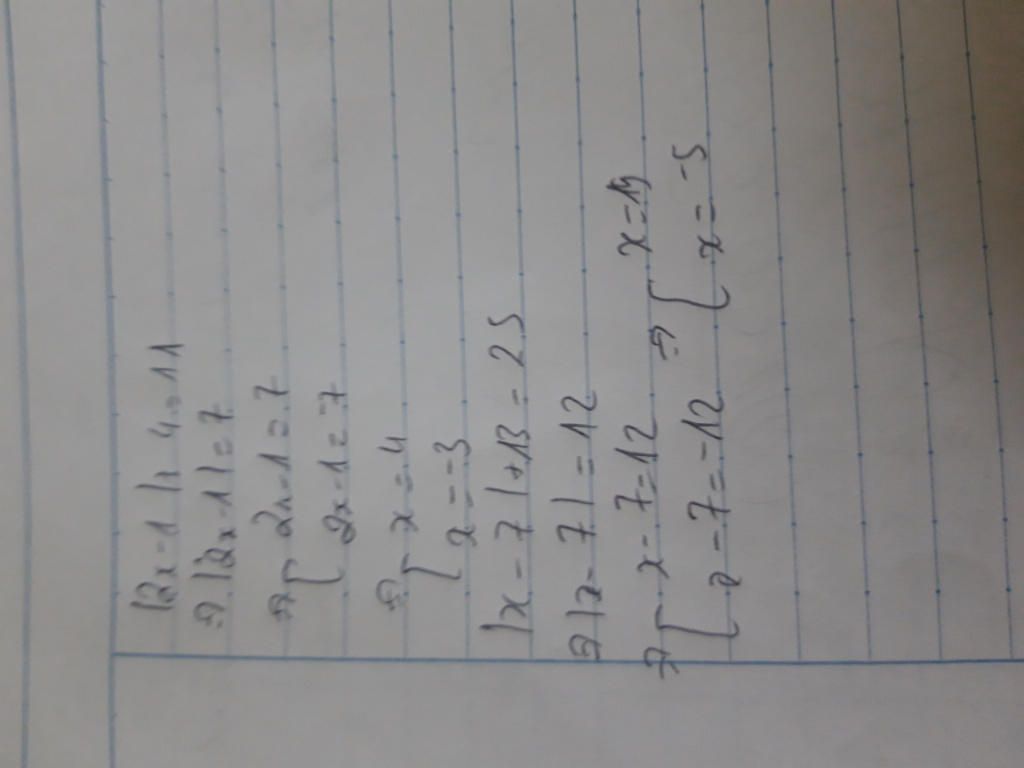 |2x-1|+4=11
⇒|2x-1|=7
⇒[2x-1=7
[2x-1=-7
⇒[x=4
[x=-3
|x-7|+13=25
⇒|x-7|=12
⇒[x-7=12 ⇒[x=19
[x-7=-12 [x=-5